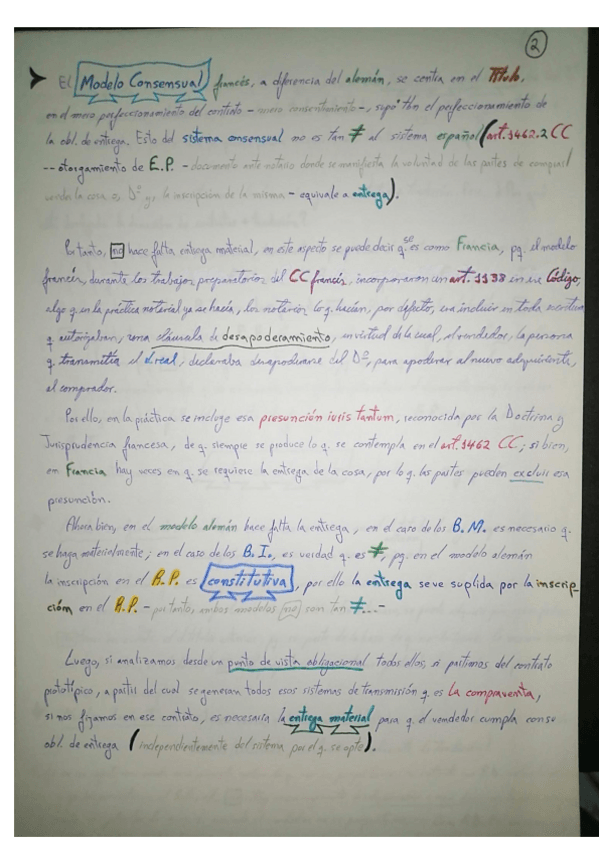 2
El Modelo Consensual francés, a diferencia del alemán, se centra en el Título,
en el mero perfeccionamiento del contrato - mero consentimiento -, supo tan el perfeccionamiento de
la obl. de entrega. Esto del sistema consensual no es tan ≠ al sistema español (art. 1462.2 CC
-- otorgamiento de E.P. - documento ante notario donde se manifiesta la voluntad de las partes de comprar/
vender la cosa o, Dº y, la inscripción de la misma - equivale a entrega).
Por tanto, no hace falta entrega material, en este aspecto se puede decir q. se es como Francia, pq. el modelo
francés, durante los trabajos preparatorios del CC francés, incorporaron un art. 1138 en su Código,
algo q. en la práctica notarial ya se hacía, los notarios lo q. hacían, por defecto, era incluir en toda escritura
q. autorizaban, una cláusula de desapoderamiento, en virtud de la cual, el vendedor, la persona
q. transmitía el d. real, declaraba desapoderarse del Dº, para apoderar al nuevo adquirente,
el comprador.
Por ello, en la práctica se incluye esa presunción iuris tantum, reconocida por la Doctrina y
Jurisprudencia francesa, de q. siempre se produce lo q. se contempla en el art. 1462 CC; si bien,
en Francia hay veces en q. se requiere la entrega de la cosa, por lo q. las partes pueden excluir esa
presunción.
Ahora bien, en el modelo alemán hace falta la entrega, en el caso de los B.M. es necesario q.
se haga materialmente; en el caso de los B.I., es verdad q. es ≠, pq. en el modelo alemán
la inscripción en el R.P. es constitutiva, por ello la entrega se ve suplida por la inscrip-
ción en el R.P. - por tanto, ambos modelos no son tan ≠...-
Luego, si analizamos desde un punto de vista obligacional todos ellos, si partimos del contrato
prototípico, a partir del cual se generan todos esos sistemas de transmisión q. es la compraventa,
si nos fijamos en ese contrato, es necesaria la entrega material para q. el vendedor cumpla con su
obl. de entrega (independientemente del sistema por el q. se opte).